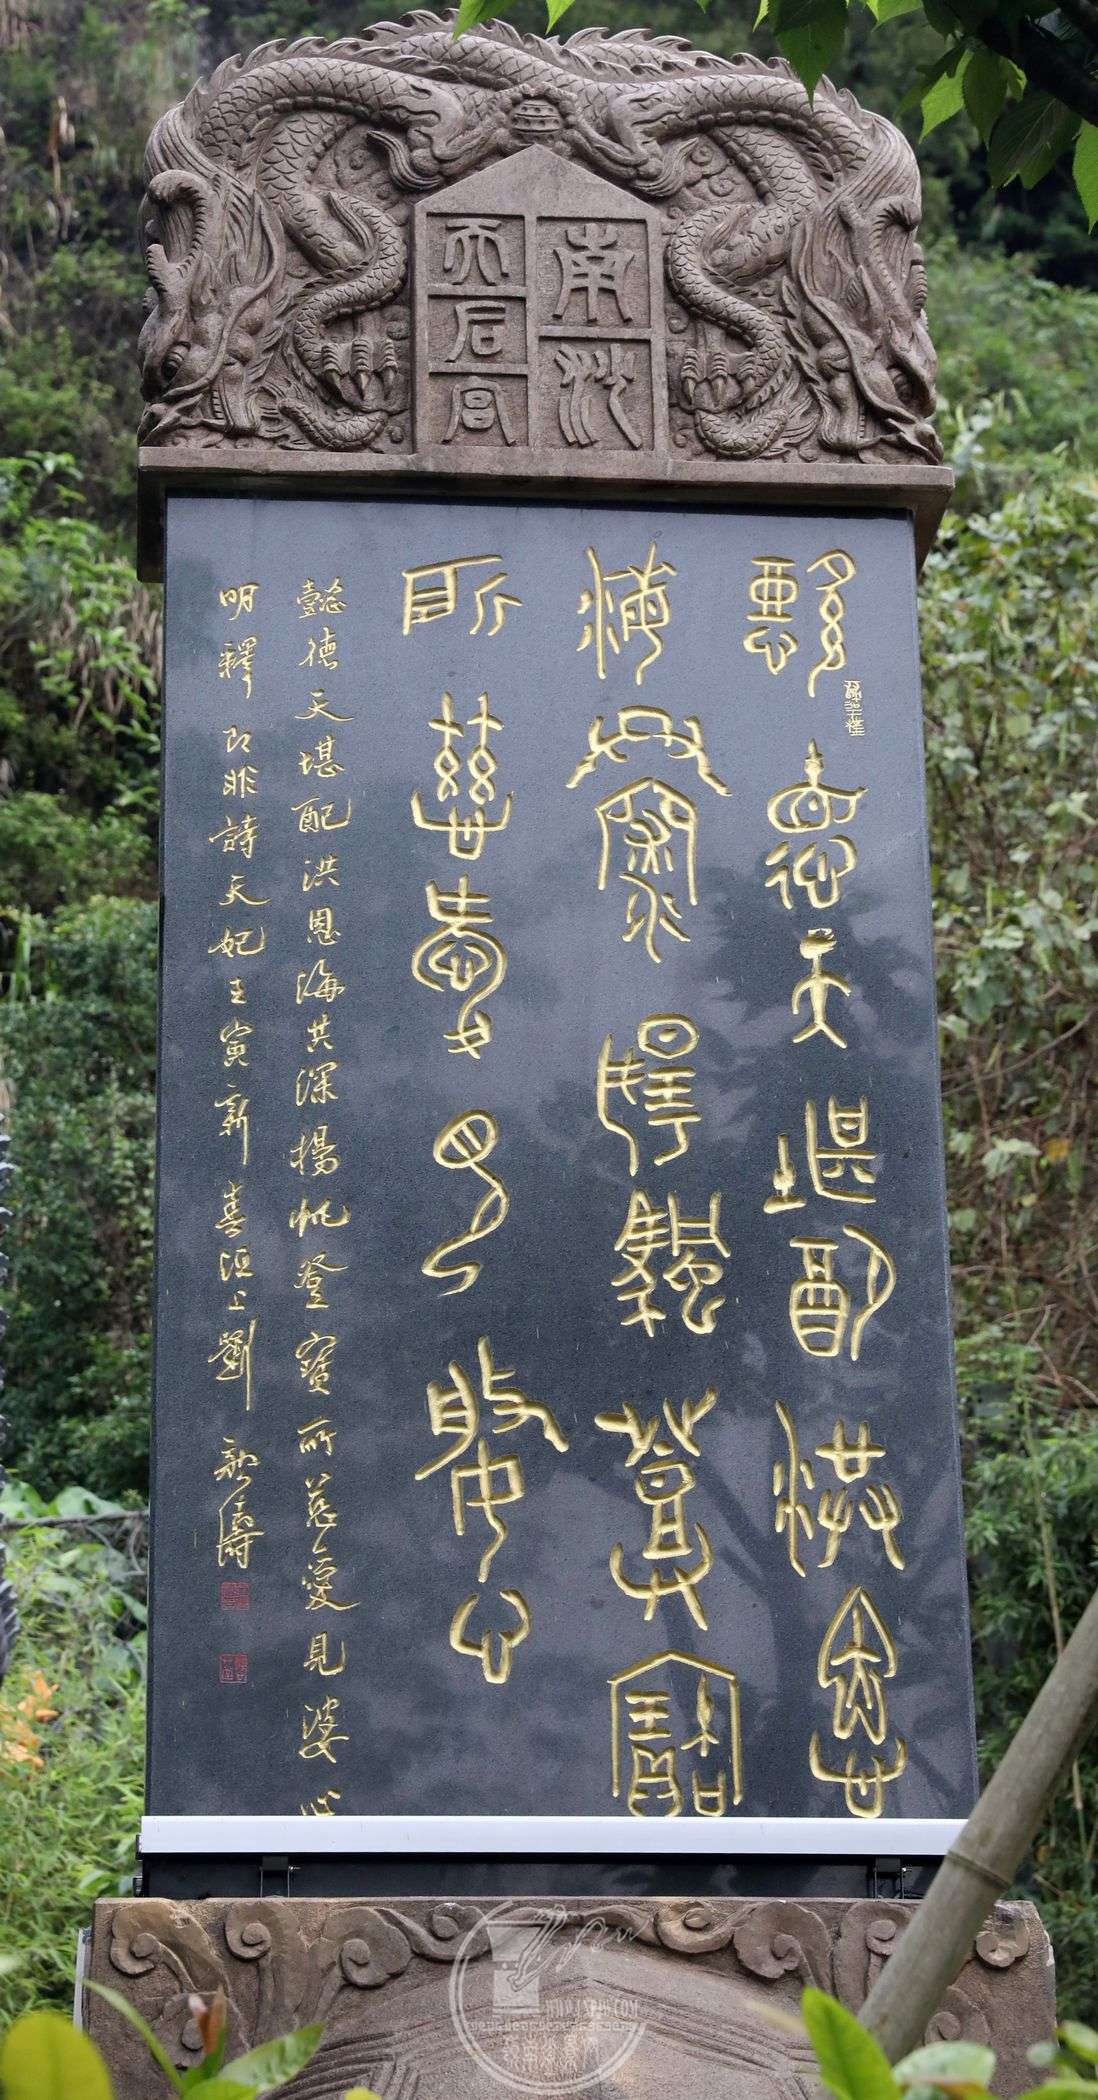 南沙
天后宮
懿德天堪配洪恩
海共深揚帆登寶
所慈愛見婆心
懿德天堪配洪恩海共深揚帆登寶所慈愛見婆心
明釋即非詩天妃壬寅新春洹上劉新濤